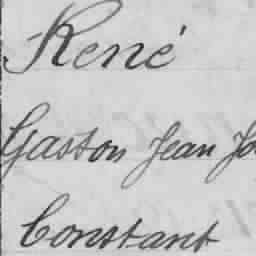 René
Gaston Jean Jo
Constant